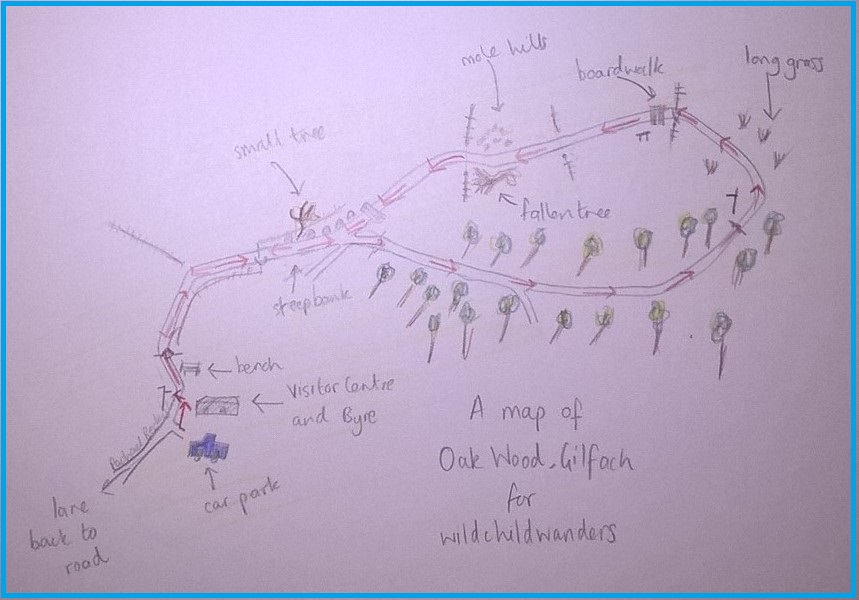 mole hills
boardwalk
long grass
small tree
fallen tree
steep bank
bench
Visitor Centre
and Byre
car park
lane
back to
road
A map of
Oak Wood, Gilfach
for
wildchildwanders